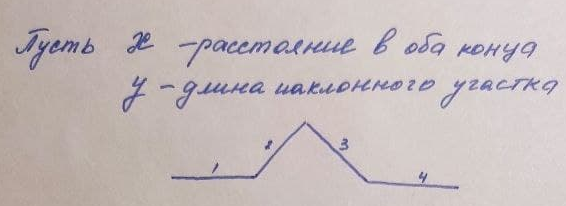 Пусть x - расстояние в оба конца
y - длина наклонного участка
1 2 3 4